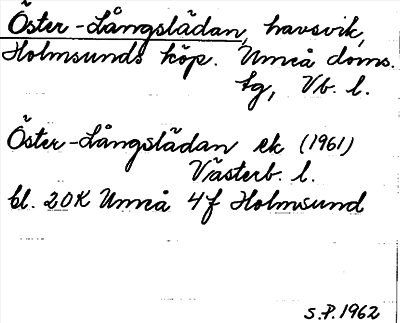 Öster-Långslädan, havsvik,
Holmsunds köp. Umeå doms.
tg, Vb. l.
Öster-Långslädan ek (1961)
Västerb. l.
bl. 20K Umeå 4f Holmsund
S.P. 1962